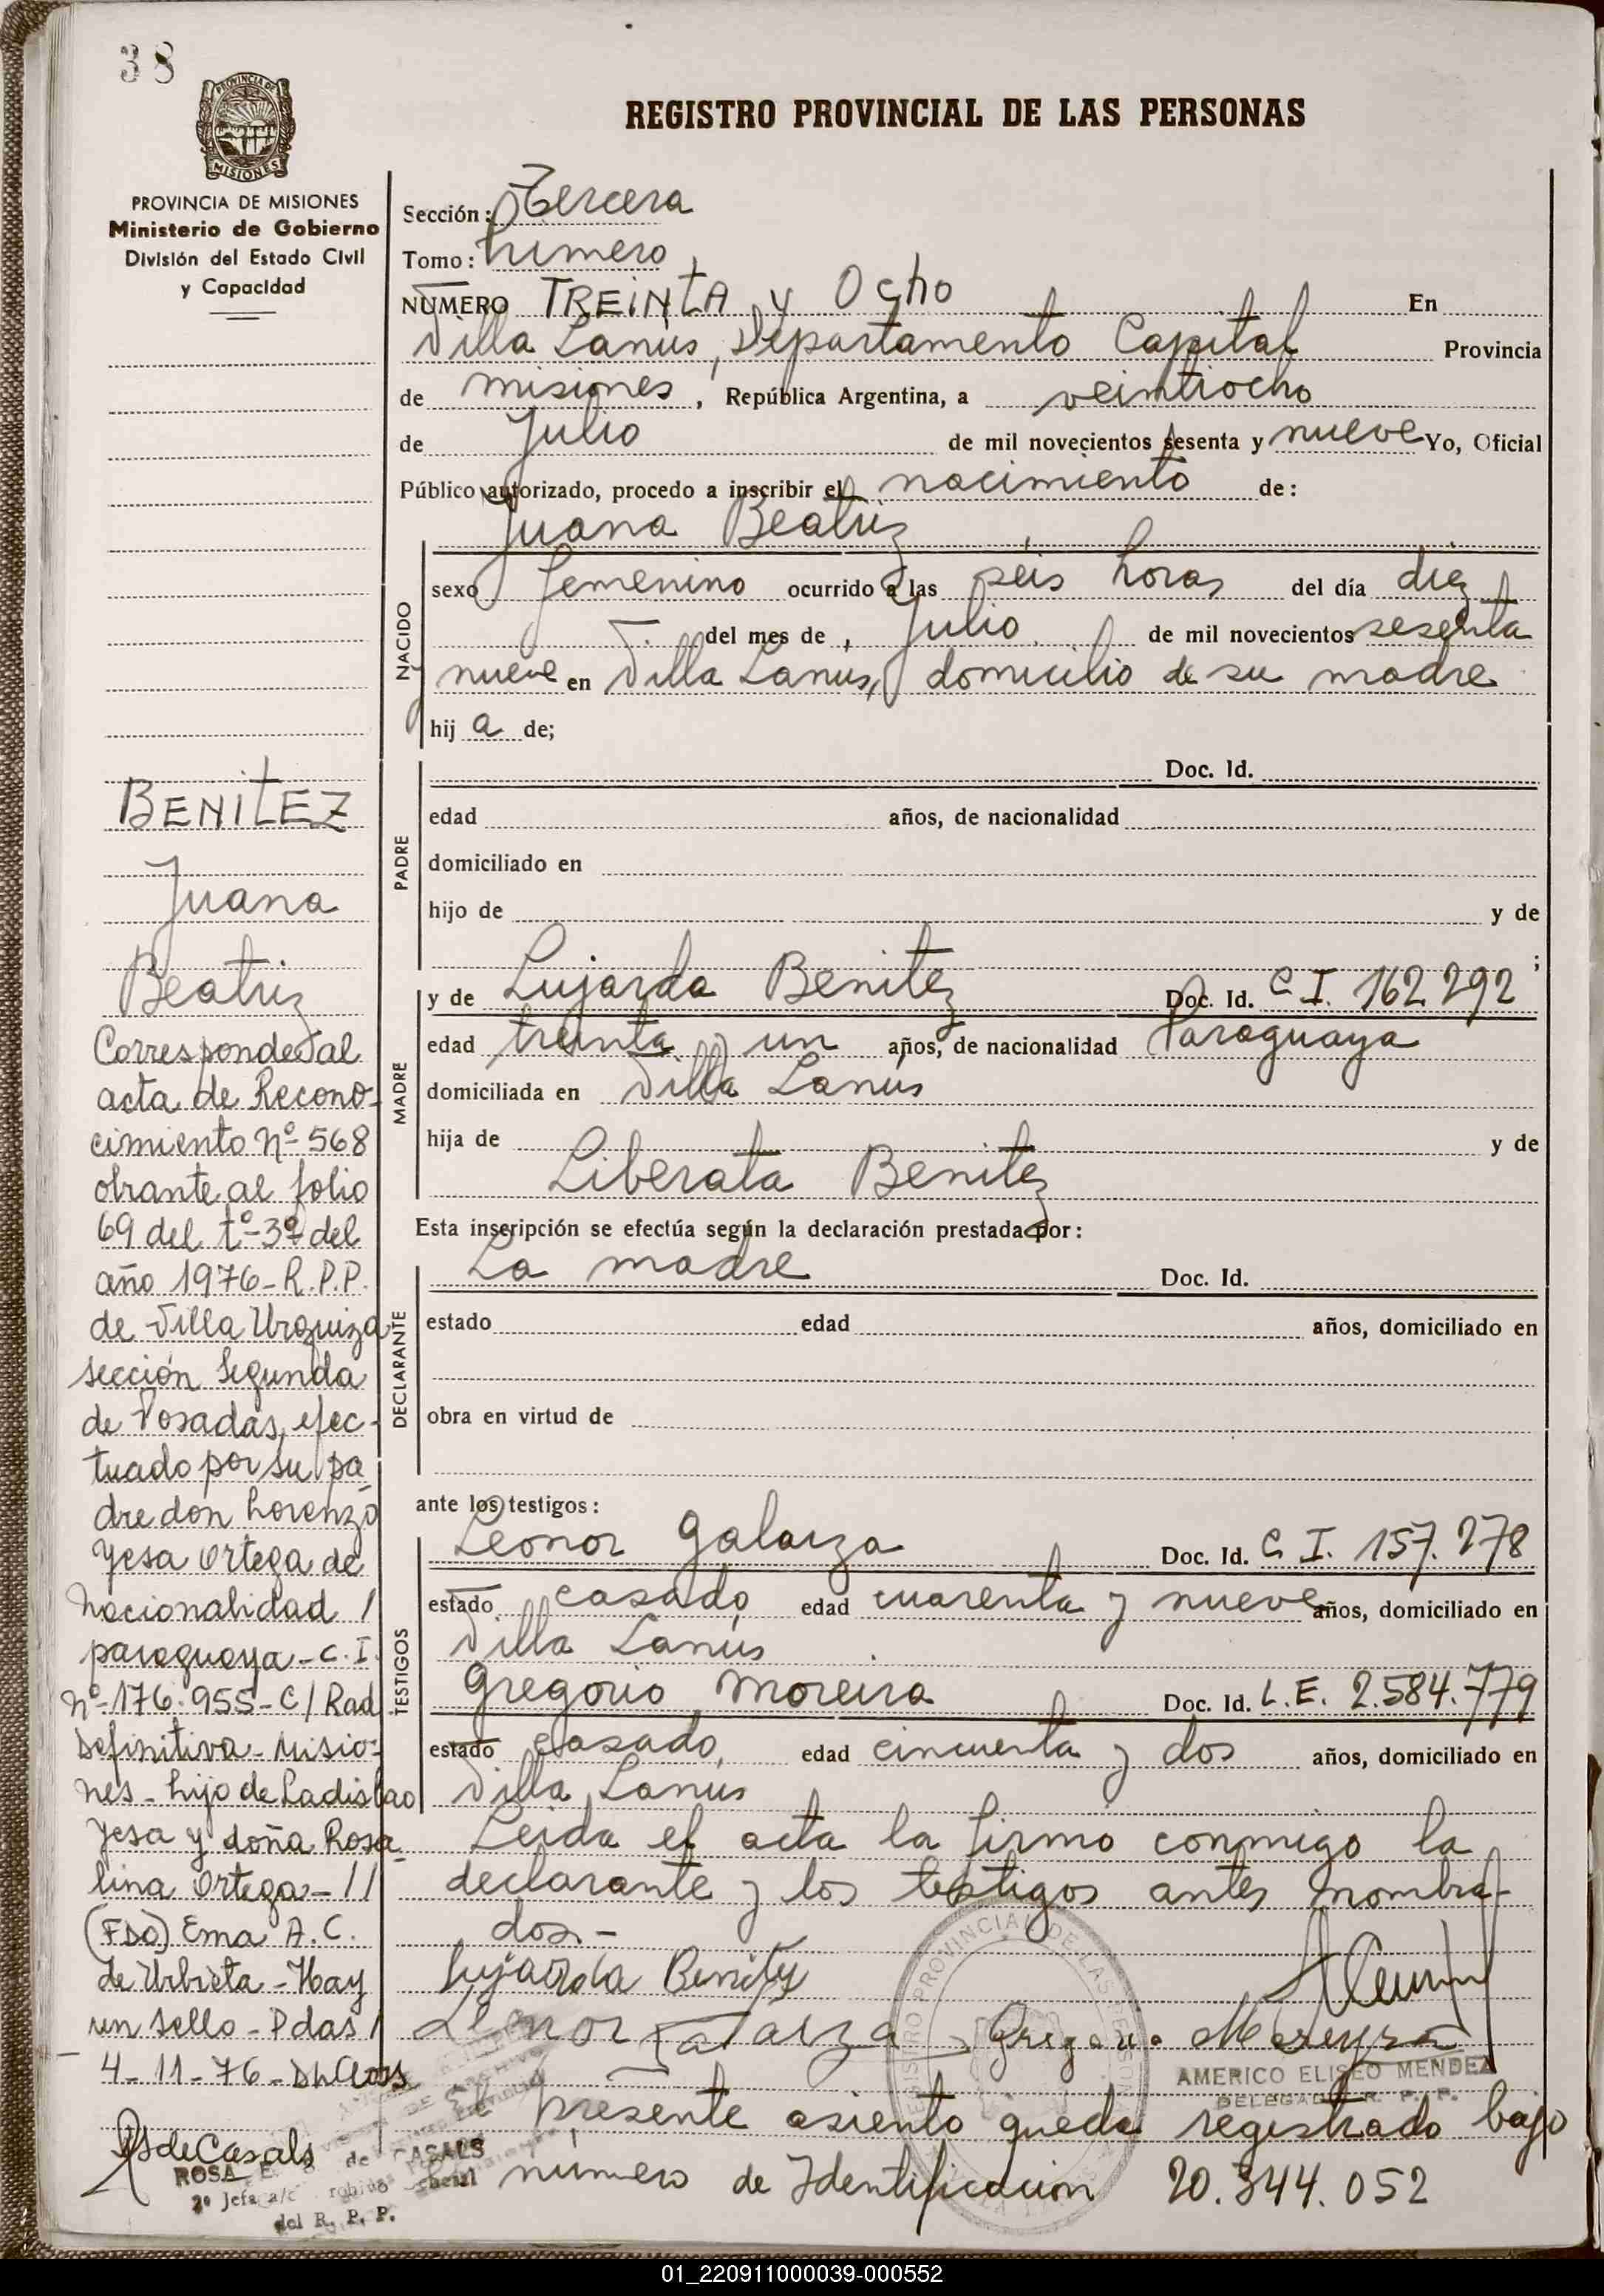 38
PROVINCIA DE
MISIONES
REGISTRO PROVINCIAL DE LAS PERSONAS
PROVINCIA DE MISIONES
Ministerio de Gobierno
División del Estado Civil
y Capacidad
Sección: Tercera
Tomo: Primero
NUMERO TREINTA y Ocho En
Villa Lanús, Departamento Capital Provincia
de misiones, República Argentina, a veintiocho
de Julio de mil novecientos sesenta y nueve Yo, Oficial
Público autorizado, procedo a inscribir el nacimiento de:
Juana Beatriz
NACIDO
sexo femenino ocurrido a las seis horas del día diez
del mes de Julio de mil novecientos sesenta
y nueve en Villa Lanús, domicilio de su madre
hij a de;
PADRE
Doc. Id.
edad años, de nacionalidad
domiciliado en
hijo de y de
;
MADRE
y de Lujarda Benitez Doc. Id. C I. 162.292
edad treinta y un años, de nacionalidad Paraguaya
domiciliada en Villa Lanús
hija de y de
Liberata Benitez
Esta inscripción se efectúa según la declaración prestada por:
DECLARANTE
La madre Doc. Id.
estado edad años, domiciliado en
obra en virtud de
ante los testigos:
TESTIGOS
Leonor Galarza Doc. Id. C I. 157.278
estado casado edad cuarenta y nueve años, domiciliado en
Villa Lanús
Gregorio Moreira Doc. Id. L.E. 2.584.779
estado casado, edad cincuenta y dos años, domiciliado en
Villa Lanús
Leida el acta la firmo conmigo la
declarante y los testigos antes nombra-
dos.-
Lujarda Benitez
Leonor Galarza Gregorio Mereyra
AMERICO ELISEO MENDEZ
DELEGADO R. P. P.
El presente asiento queda registrado bajo
número de Identificación 20.344.052
BENITEZ
Juana
Beatriz
Corresponde al
acta de Recono-
cimiento nº 568
obrante al folio
69 del tº-3º del
año 1976-R.P.P.
de Villa Urquiza
sección Segunda
de Posadas, efec-
tuado por su pa-
dre don Lorenzo
Yesa Ortega de
nacionalidad /
paraguaya-C.I.
nº-176.955-C/Rad
Definitiva-Misio-
nes-hijo de Ladislao
Yesa y doña Rosa-
lina Ortega-//
(FDO) Ema A.C.
de Urbieta-Hay
un sello-Pdas/
4-11-76-
RSdeCasals
ROSA E. de CASALS
2º Jefa a/c
del R. P. P.
01_220911000039-000552